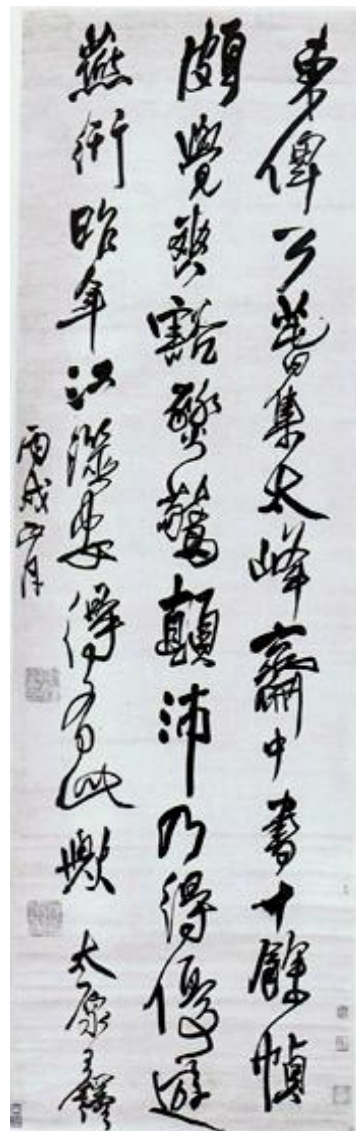 東偉公暮集太峰齋中書十餘幀
頗覺爽豁驚顛沛乃得優遊
燕衎昨年江澨安得有此歟 太原王鐸
丙戌正月